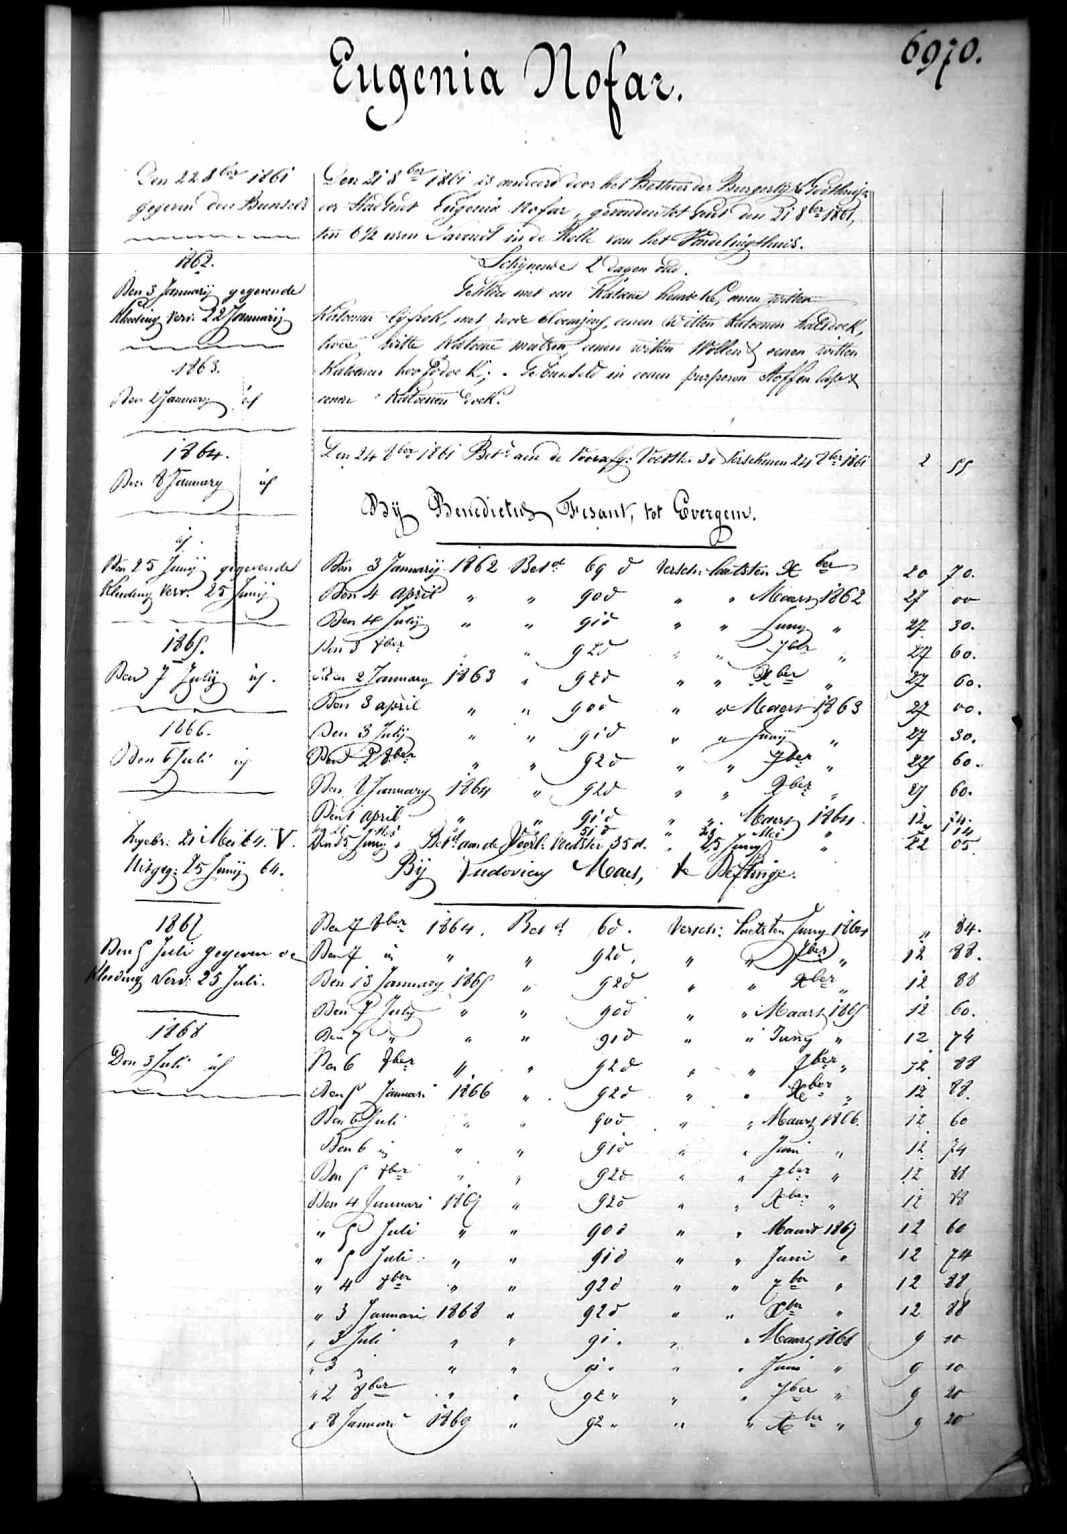 6970.
Eugenia Nofar.
Den 22 8ber 1861
gegeven een Bunsels
1862.
Den 3 Januarij gegevende
Kleeding verv. 22 Januarij
1863.
Den 2 January id
1864.
Den 8 January id
id.
Den 25 Junij gegevende
Kleeding verv. 25 Junij
1865.
Den 7 Julij id.
1866.
Den 6 Juli id
21 Mei 64. V.
Uitgeg: 25 Junij 64.
1867
Den 5 Juli gegeven de
Kleeding verv. 25 Juli.
1868
Den 3 Juli id
Den 21 8ber 1861 is aenveerd door het Bestuer der Burgerlyke Godshuizen
der Stad Gent Eugenia Nofar, gevonden tot Gent den 21 8ber 1861,
ten 6 1/2 uren s'avonds in de Rolle van het Vondelingshuis.
Schynende 2 dagen oud.
Gekleed met een Katoene hemdeke, eenen witten
Katoenen lysrok, met roode bloemjens, eenen witten Katoenen halsdoek,
twee witte Katoene mutsen eenen witten Wollen & eenen witten
Katoenen hoofddoek; Gebunseld in eenen purperen Stoffen lap &
eenen Katoenen doek.
Den 24 8ber 1861 Betd aen de Voorzg: Voedster 3d Verschenen 24 8ber 1861 2 55
By Benedictus Fesant, tot Evergem.
Den 3 Januarij 1862 Betd 69 d Versch: laetsten Xber 20 70.
Den 4 april " " 90d " " Maart 1862 27 00
Den 4 Julij " " 91d " " Juny " 27 30.
Den 3 8ber " " 92d " " 7ber " 27 60.
Den 2 January 1863 " 92d " " Xber " 27 60.
Den 3 april " " 90d " " Maart 1863 27 00.
Den 3 Julij " " 91d " " Junij " 27 30.
Den 2 8ber " " 92d " " 7ber " 27 60.
Den 8 January 1864 " 92d " " Xber " 27 60.
Den 1 april " " 91d " " Maart 1864 12 74.
Den 25 Junij " Betd aan de Voorl: Voedster 35d. " 25 Junij " 22 05.
By Ludovicus Maes, te Deftinge.
Den 7 8ber 1864. Betd 6d. Versch: laetsten Juny 1864 " 84.
Den 7 id " " 92d. " " 7ber " 12 88.
Den 13 January 1865 " 92d " " Xber " 12 88
Den 7 July " " 90d " " Maart 1865 12 60.
Den 7 " " " 91d " " Juny " 12 74
Den 6 8ber " " 92d " " 7ber " 12 88
Den 5 Januari 1866 " 92d " " Xber " 12 88.
Den 6 Juli " " 90d " " Maart 1866. 12 60
Den 6 id " " 91d " " Juni " 12 74
Den 5 8ber " " 92d " " 7ber " 12 88
Den 4 Januari 1867 " 92d " " Xber " 12 88
" 5 Juli " " 90d " " Maart 1867 12 60
" 5 Juli " " 91d " " Juni " 12 74
" 4 8ber " " 92d " " 7ber " 12 88
" 3 Januari 1868 " 92d " " Xber " 12 88
" 3 Juli " " 91 " " " Maart 1868 9 10
" 3 id " " 91 " " " Juni " 9 10
" 2 8ber " " 92 " " " 7ber " 9 20
" 8 Januari 1869 " 92 " " " Xber " 9 20